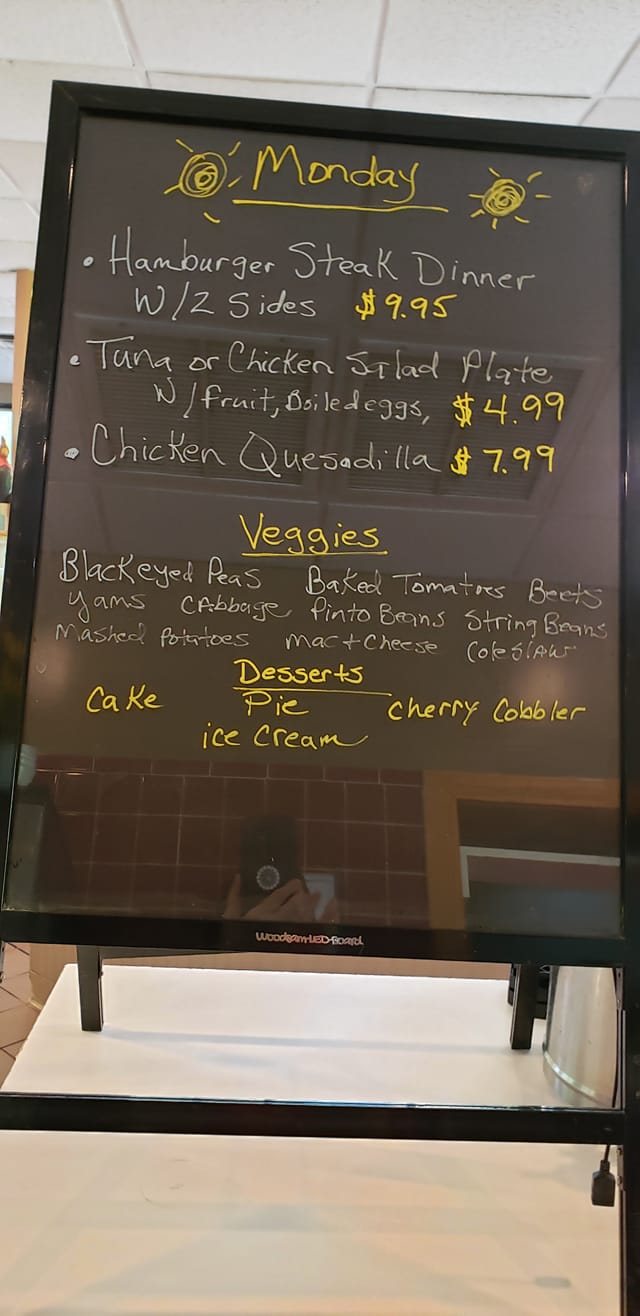 Monday
• Hamburger Steak Dinner
W/2 Sides $9.95
• Tuna or Chicken Salad Plate
W/fruit, Boiled eggs, $4.99
• Chicken Quesadilla $7.99
Veggies
Blackeyed Peas Baked Tomatoes Beets
Yams Cabbage Pinto Beans String Beans
Mashed Potatoes Mac + Cheese Coleslaw
Desserts
Cake Pie Cherry Cobbler
ice cream
Woodsam LED-Board